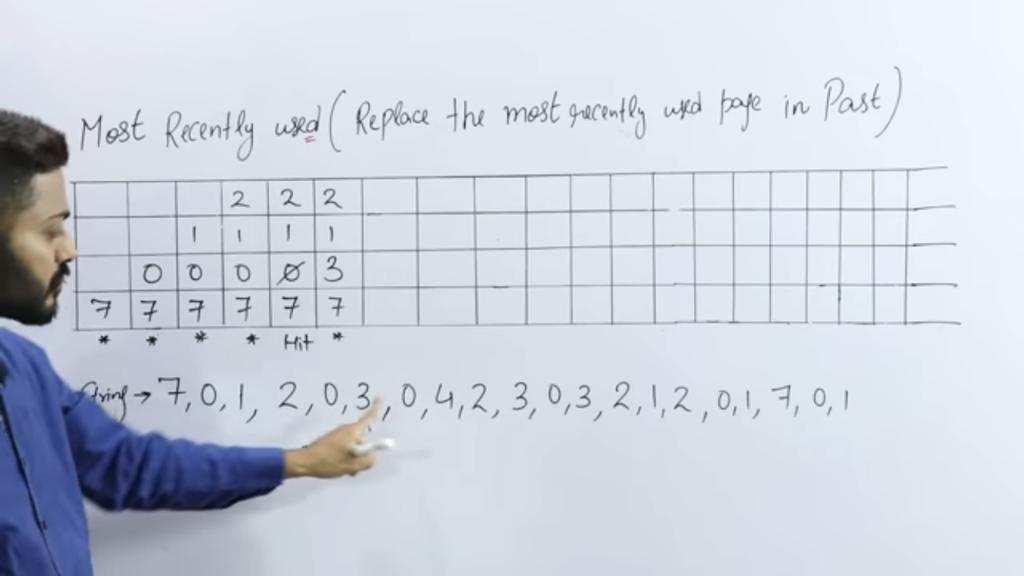 Most Recently used (Replace the most recently used page in Past)
2 2 2
1 1 1 1
0 0 0 0 3
7 7 7 7 7 7
* * * * Hit *
String → 7, 0, 1, 2, 0, 3, 0, 4, 2, 3, 0, 3, 2, 1, 2, 0, 1, 7, 0, 1